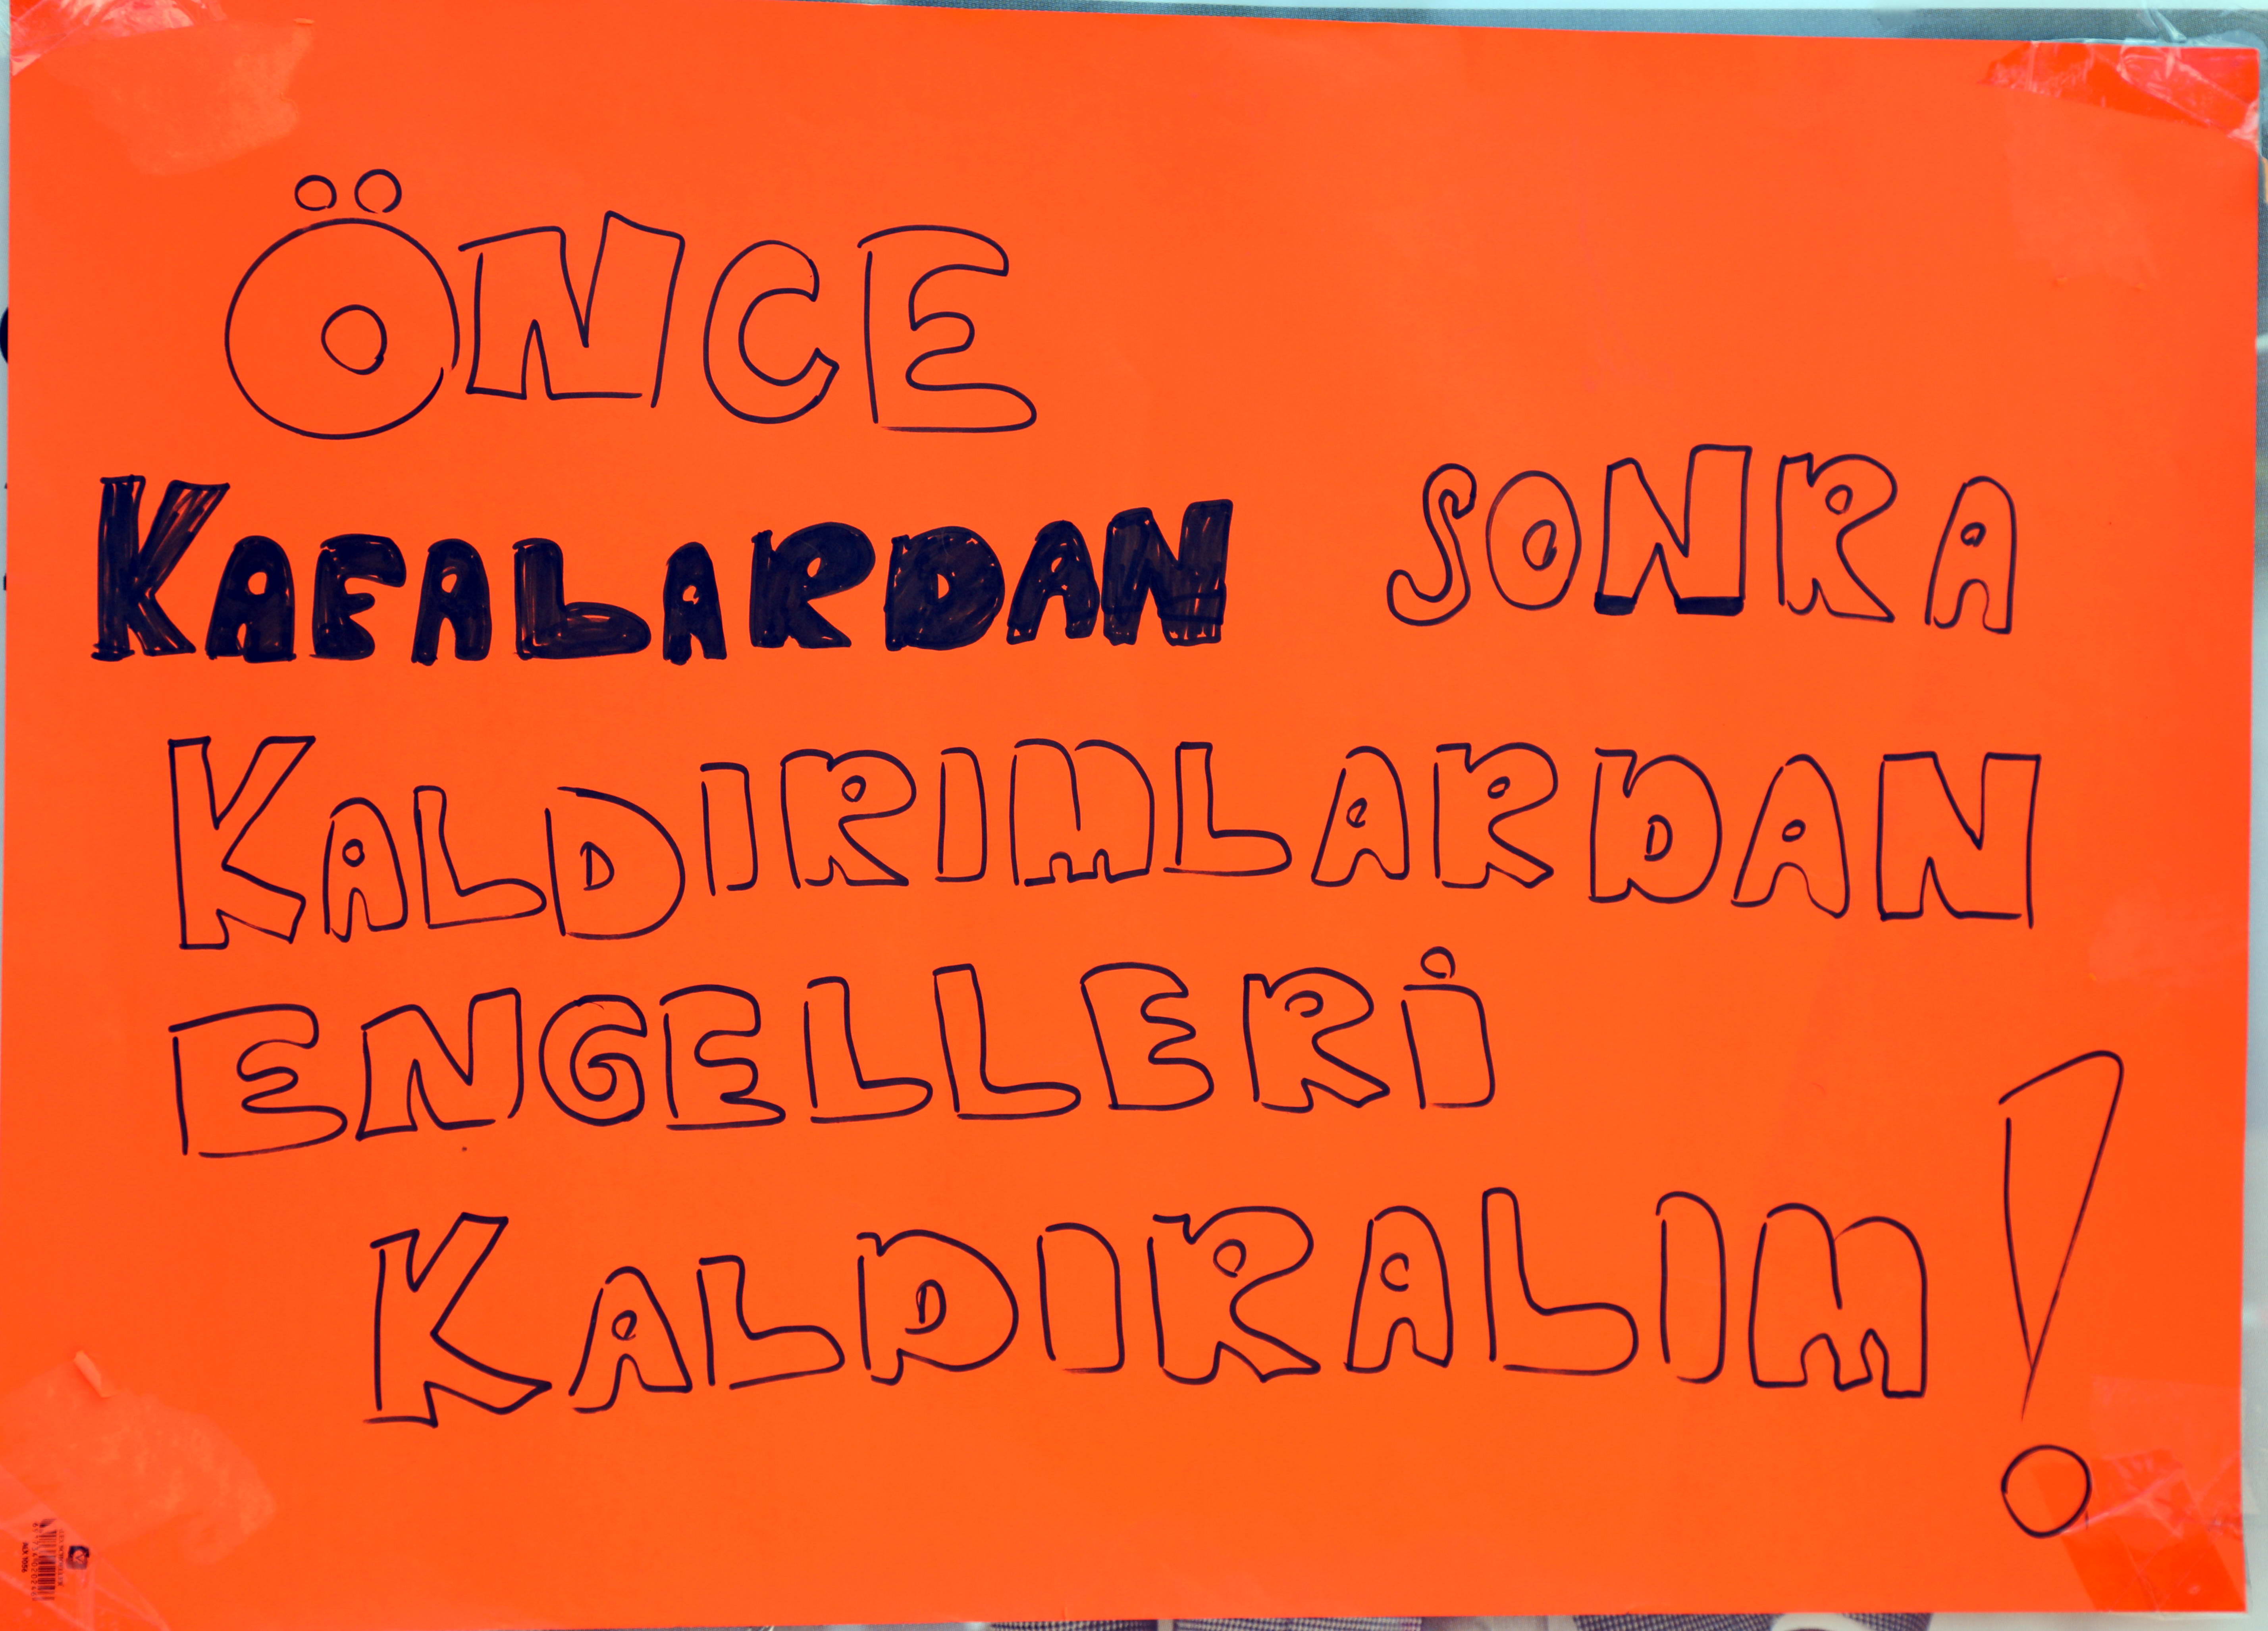 ÖNCE
KAFALARDAN SONRA
KALDIRIMLARDAN
ENGELLERİ
KALDIRALIM!